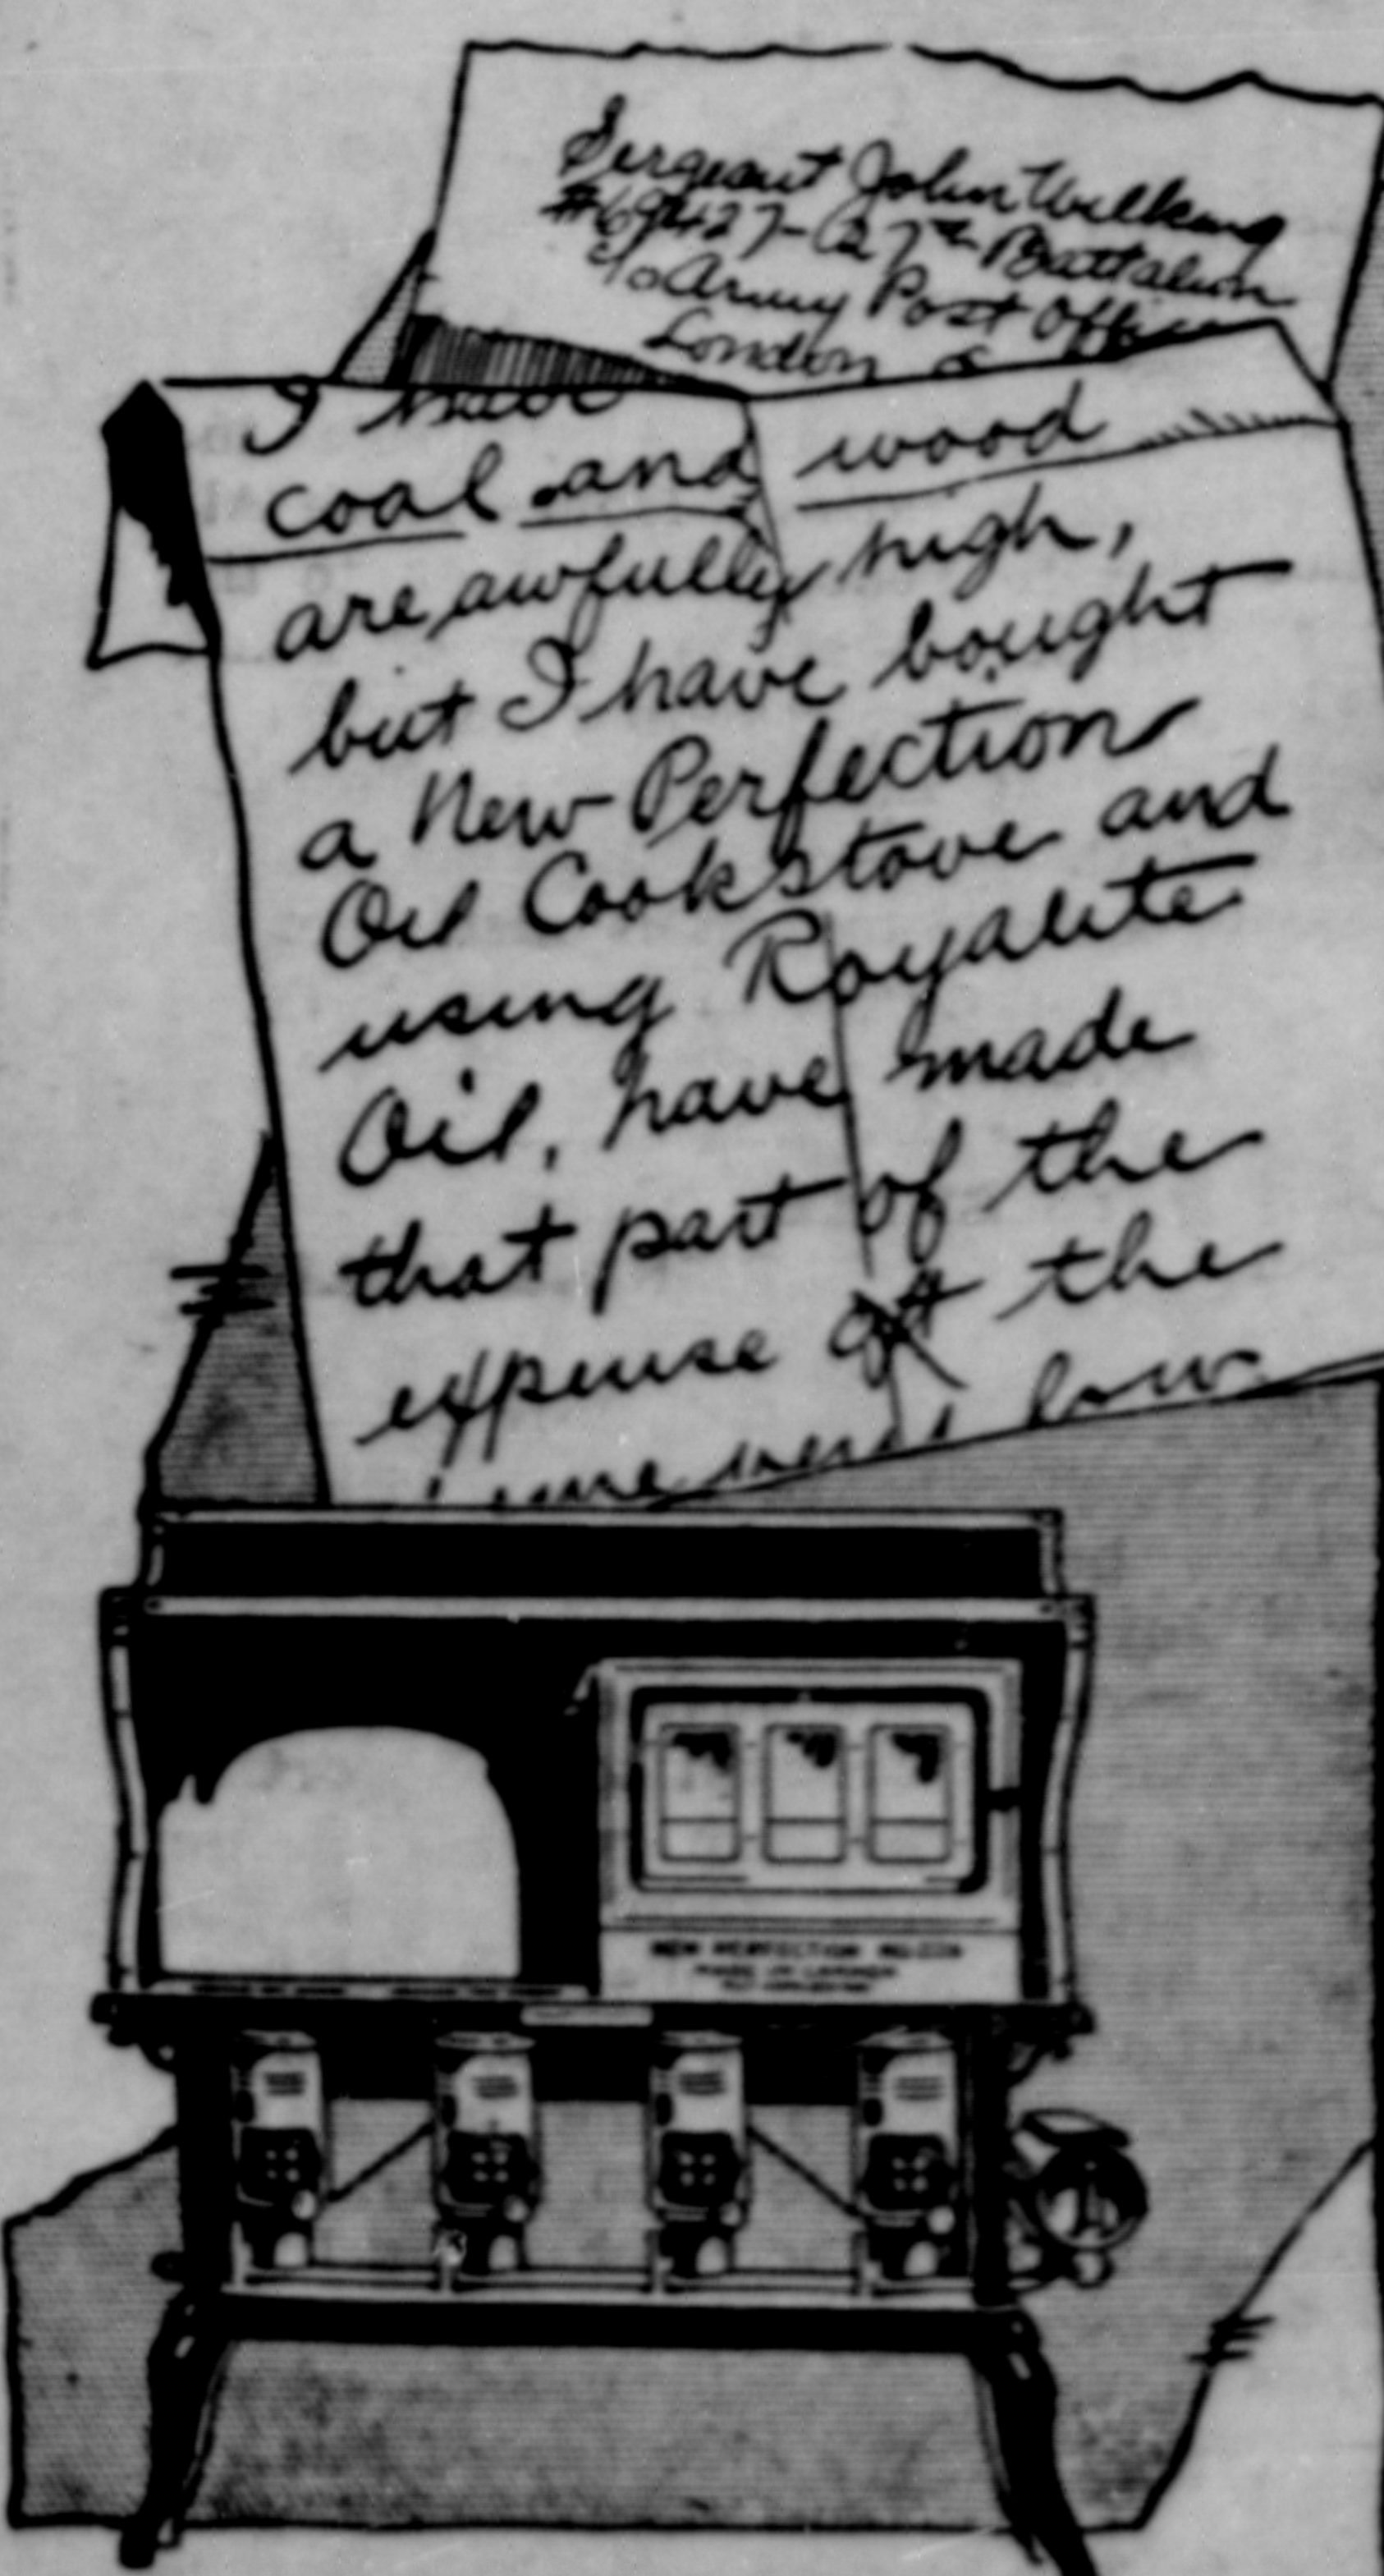 Sergeant John Wilkins
#69427-27th Battalion
c/o Army Post Office
London
I have
coal and wood
are awfully high,
but I have bought
a New Perfection
Oil Cookstove and
using Royalite
Oil, have made
that part of the
expense of the
home very low
NEW PERFECTION
MADE IN CANADA